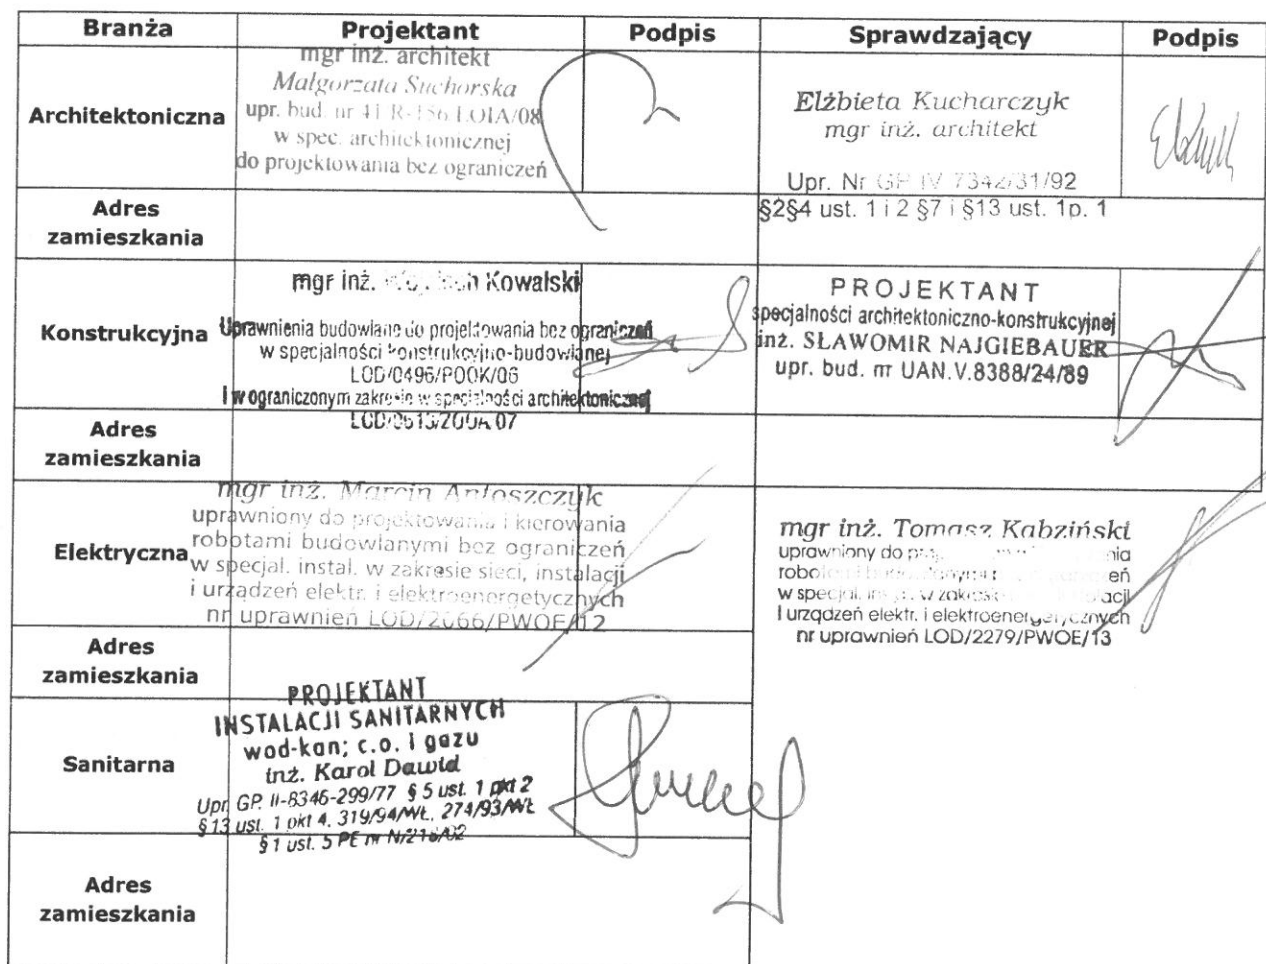 Branża Projektant Podpis Sprawdzający Podpis
Architektoniczna
mgr inż. architekt
Małgorzata Suchorska
upr. bud. nr LOIA/08
w spec. architektonicznej
do projektowania bez ograniczeń
Elżbieta Kucharczyk
mgr inż. architekt
Upr. Nr GP IV 7342/31/92
§2§4 ust. 1 i 2 §7 i §13 ust. 1p. 1
Adres
zamieszkania
Konstrukcyjna
mgr inż. Kowalski
Uprawnienia budowlane do projektowania bez ograniczeń
w specjalności konstrukcyjno-budowlanej
LOD/0496/POOK/06
I w ograniczonym zakresie w specjalności architektonicznej
PROJEKTANT
specjalności architektoniczno-konstrukcyjnej
inż. SŁAWOMIR NAJGIEBAUER
upr. bud. nr UAN.V.8388/24/89
Adres
zamieszkania
Elektryczna
mgr inż. Marcin Antoszczyk
uprawniony do projektowania i kierowania
robotami budowlanymi bez ograniczeń
w specjal. instal. w zakresie sieci, instalacji
i urządzeń elektr. i elektroenergetycznych
nr uprawnień LOD/2066/PWOE/12
mgr inż. Tomasz Kabziński
uprawniony do
w specjal.
I urządzeń elektr. i elektroenergetycznych
nr uprawnień LOD/2279/PWOE/13
Adres
zamieszkania
Sanitarna
PROJEKTANT
INSTALACJI SANITARNYCH
wod-kan; c.o. i gazu
inż. Karol Dawid
Upr. GP. II-8346-299/77 § 5 ust. 1 pkt 2
§ 13 ust. 1 pkt 4, 319/94/WŁ, 274/93/WŁ
§ 1 ust. 5 PE nr
Adres
zamieszkania